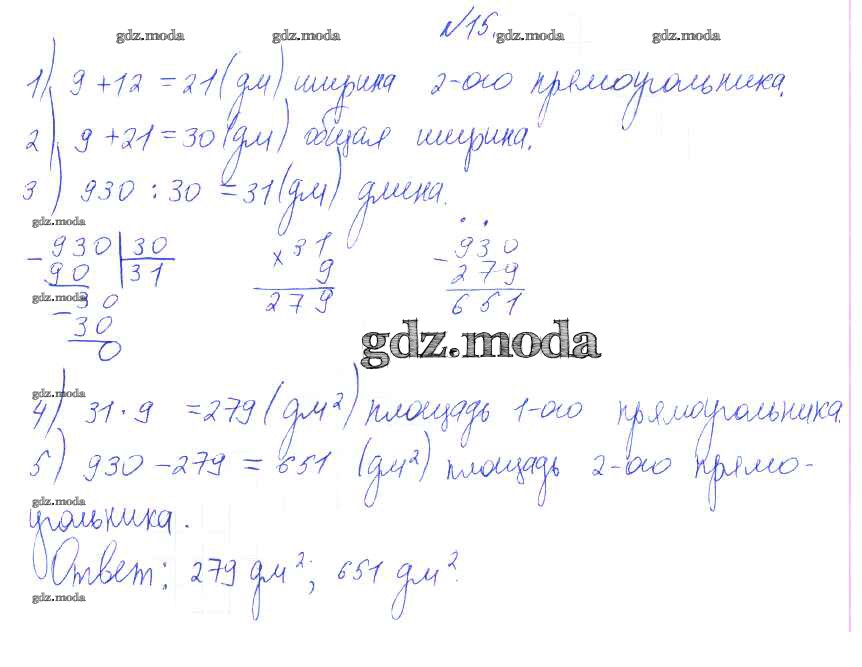 №15.
gdz.moda gdz.moda gdz.moda
1) 9 + 12 = 21 (дм) ширина 2-ого прямоугольника.
2) 9 + 21 = 30 (дм) общая ширина.
3) 930 : 30 = 31 (дм) длина.
gdz.moda
- 930 | 30
90 31
gdz.moda
- 30
30
0
× 31
9
279
- 930
279
651
gdz.moda
gdz.moda
4) 31 · 9 = 279 (дм²) площадь 1-ого прямоугольника.
5) 930 - 279 = 651 (дм²) площадь 2-ого прямо-
gdz.moda
угольника.
Ответ: 279 дм²; 651 дм².
gdz.moda